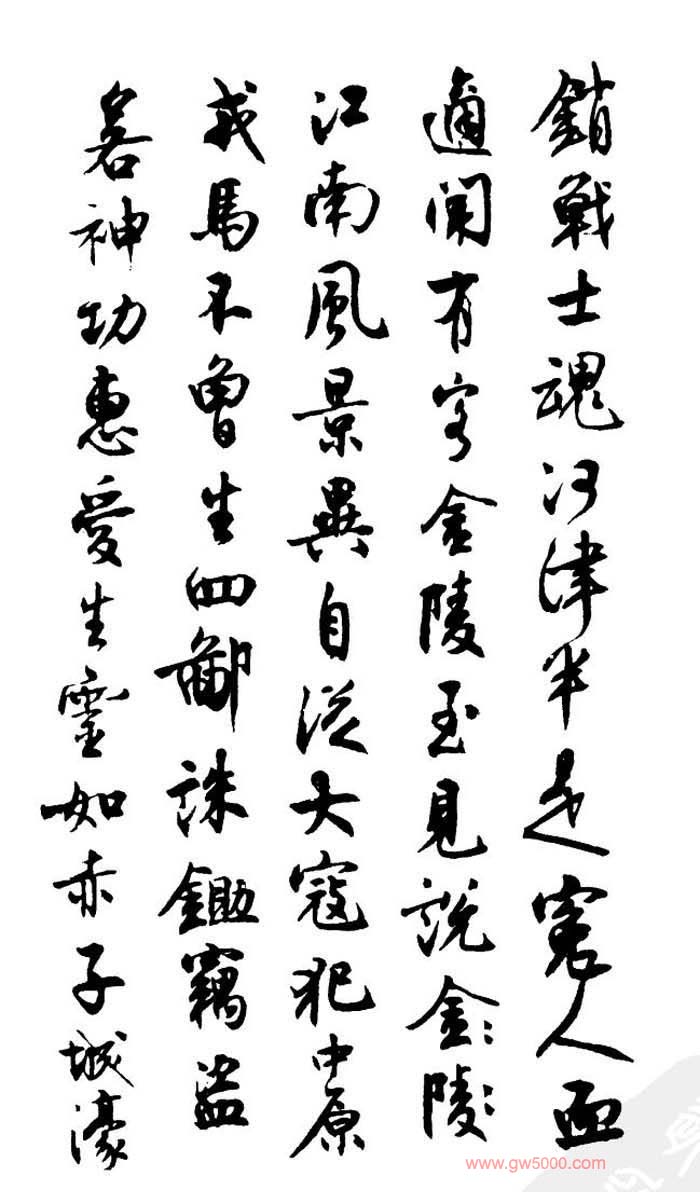 鎖戰士魂河津半是冤人血
適聞有客金陵至見說金:陵:
江南風景異自從大寇犯中原
戎馬不曾生四鄙誅鋤竊盜
若神功惠愛生靈如赤子城濠
www.gw5000.com